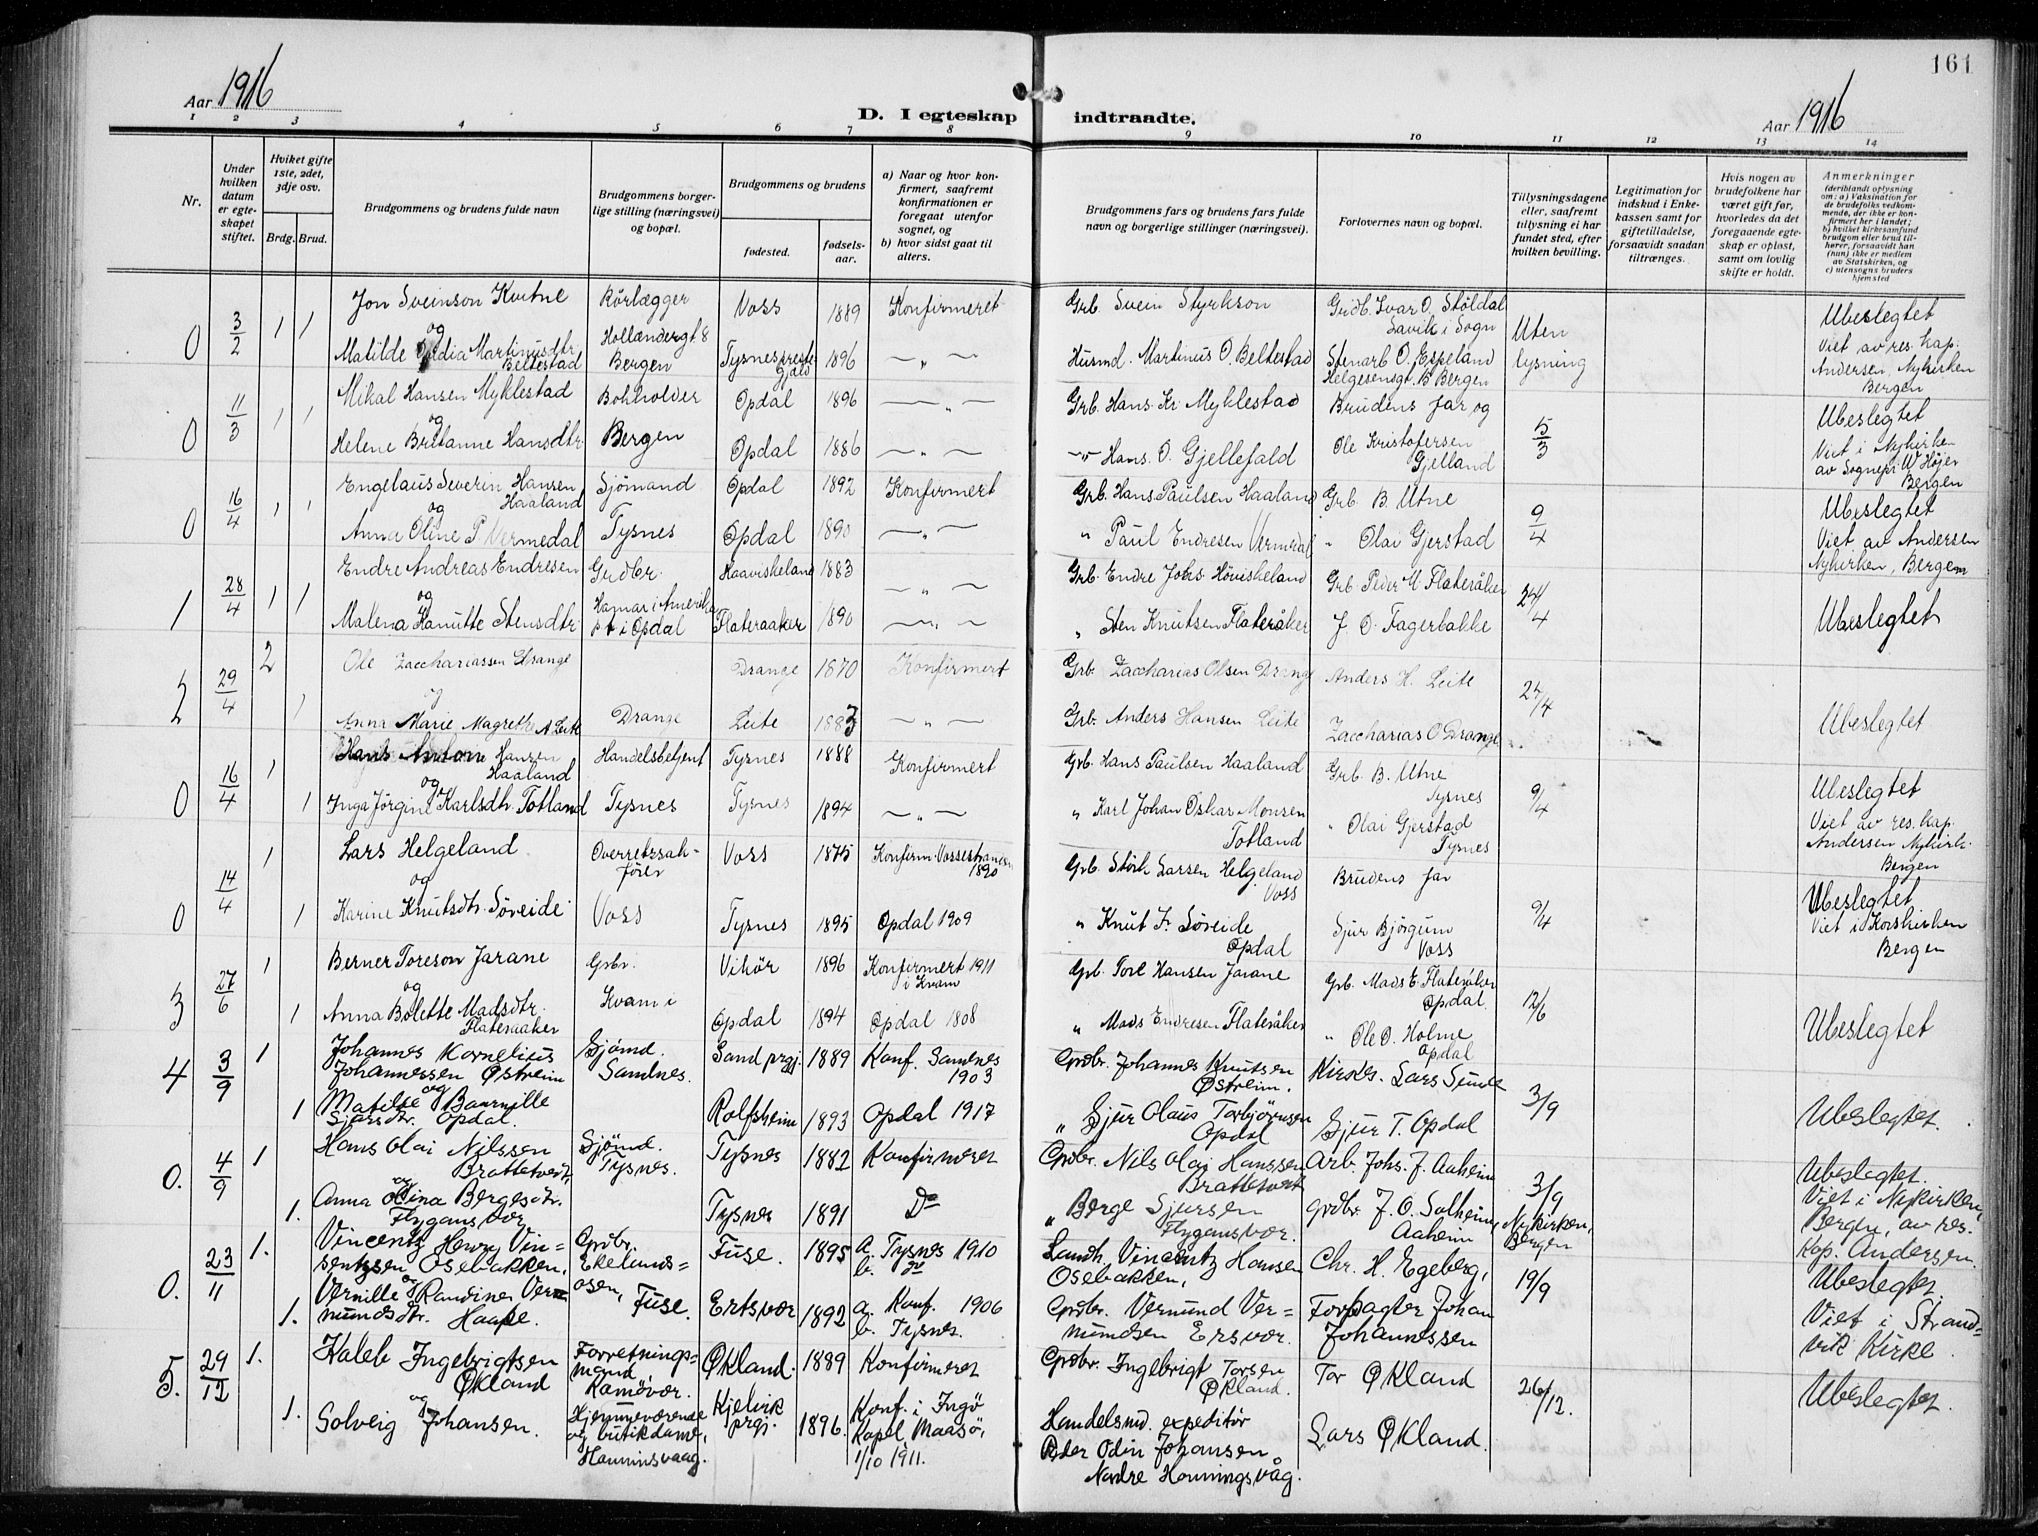 161
Aar 1916
Aar 1916
D. I egteskap indtraadte.
1 2 3 4 5 6 7 8 9 10 11 12 13 14
Nr.
Under hvilken datum er egteskapet stiftet.
Hvilket gifte 1ste, 2det, 3dje osv.
Brdg. Brud.
Brudgommens og brudens fulde navn
Brudgommens borgerlige stilling (næringsvei) og bopæl.
Brudgommens og brudens
fødested.
fødselsaar.
a) Naar og hvor konfirmert, saafremt konfirmationen er foregaat utenfor sognet, og
b) hvor sidst gaat til alters.
Brudgommens fars og brudens fars fulde navn og borgerlige stillinger (næringsvei).
Forlovernes navn og bopæl.
Tillysningsdagene eller, saafremt tillysning ei har fundet sted, efter hvilken bevilling.
Legitimation for indskud i Enkekassen samt for giftetilladelse, forsaavidt saadan tiltrænges.
Hvis nogen av brudefolkene har været gift før, hvorledes da det foregaaende egteskap er opløst, samt om lovlig skifte er holdt.
Anmerkninger
(deriblandt oplysning om: a) Vaksination for de brudefolks vedkommende, der ikke er konfirmert her i landet; b) hvilket kirkesamfund brudgom eller brud tilhører, forsaavidt han (hun) ikke er medlem av Statskirken, og c) utensogns bruders hjemsted
0 3/2 1 1 Jon Sveinson Kvitne Rörlægger Voss 1889 Konfirmeret Grb Svein Styrkson Grdb. Ivar O. Stöldal Ubeslegtet
og Hollændergt 8 Lavik i Sogn Uten Viet av res. kap.
Matilde Martinusdtr. Beltestad Bergen Tysnes prestegjeld 1896 — " — Husmd. Martinus O. Beltestad Stenarb O. Espeland lysning Andersen, Nykirken
Bergen Bergen
0 11/3 1 1 Mikal Hansen Myklestad Bohholder Opdal 1896 — " — Grb. Hans Kr Myklestad Brudens far og 5/3 Ubeslegtet
og Viet i Nykirken
Helene Britanne Hansdtr. Bergen Opdal 1886 — " — —"— Hans. O. Gjellefald Ole Kristofersen Gjelland av Sognepr. W Höjer
Bergen
0 16/4 1 1 Engelaus Severin Hansen Haaland Sjömand Opdal 1892 Konfirmert Grb. Hans Paulsen Haaland Grb. B. Utne 9/4 Ubeslegtet
og Viet av Andersen
Anna Oline P Vermedal Tysnes Opdal 1890 — " — " Paul Endresen Vermedal " Olai Gjerstad Nykirken, Bergen
1 28/4 1 1 Endre Andreas Endresen Grdbr. Haaviskeland 1883 — " — Grb. Endre Johs. Höviskeland Grb. Peder M. Flateråker 24/4 Ubeslegtet
og Hamar i Amerika
Malena Kanutte Stensdtr. p t i Opdal Flateraaker 1890 — " — " Sten Knutsen Flateråker J. O. Fagerbakke
2 29/4 2 Ole Zacchariassen Drange Drange 1870 Konfirmert Grb. Zaccharias Olsen Drange Anders H. Leite 24/4 Ubeslegtet
og
1 Anna Marie Magrethe A Leite Drange Leite 1883 — " — Grb. Anders Hansen Leite Zaccharias O Drange
0 16/4 1 Hans Anton Hansen Haaland Handelsbetjent Tysnes 1888 Konfirmert Grb. Hans Paulsen Haaland Grb. B. Utne Tysnes 9/4 Ubeslegtet
og Viet av res. kap.
1 Inga Jörgine Karlsdtr. Totland Tysnes Tysnes 1894 — " — " Karl Johan Oskar Monsen Totland " Olai Gjerstad Tysnes Andersen Nykirk.
Bergen
0 14/4 1 Lars Helgeland Overretssakförer Voss 1875 Konfirm. Vossestranen 1890 Grb. Stork Larsen Helgeland Voss Brudens far 9/4 Ubeslegtet
og Viet i Korskirken
1 Karine Knutsdtr. Söreide Voss Tysnes 1895 Opdal 1909 " Knut F. Söreide Opdal Sjur Björgum Voss Bergen
3 27/6 1 Berner Toreson Jarane Grbr. Vikör 1896 Konfirmert 1911 i Kvam Grb. Tore Hansen Jarane Grb. Mads E. Flateråker Opdal. 12/6 Ubeslegtet
og
1 Anna Bolette Madsdtr. Flateraaker Kvam i Opdal 1894 Opdal 1808 " Mads Endresen Flateråker " Ole O. Holme Opdal
4 3/9 1 Johannes Kornelius Johannessen Østreim Sjømd. Sandnes. Sand prgj. 1889 Konf. Sandnes 1903 Grdbr. Johannes Knutsen Østreim. Kirkes. Lars Sunde 3/9 Ubeslegtet.
og
1 Matilde Sjursdtr. Opdal. Rolfsheim 1893 Opdal 1917 " Sjur Olaus Torbjörnsen Opdal Sjur T. Opdal
0. 4/9 1 Hans Olai Nilssen Brattetveit Sjømd. Tysnes. Tysnes 1882 Konfirmeret Grdbr. Nils Olai Hanssen Brattetveit Arb. Johs. J. Aaheim 3/9 Ubeslegtet.
og Viet i Nykirken,
1. Anna Olina Bergesdtr. Flygansvær Tysnes 1891 Do " Berge Sjursen Flygansvær. Grdbr. J. O. Solheim, Aaheim Nykirken, Bergen Bergen, av res. Kap. Andersen.
0. 23/11 1. Vincentz Henry Vinsentzsen Osebakken, Grdbr. Ekelundsosen, Fuse. Fuse. 1895 a. Tysnes 1910 b. do Landh. Vincentz Hansen Osebakken, Chr. H. Egeberg, 19/9 Ubeslegtet.
og Viet i Strandvik Kirke.
1. Vernille Randine Vermundsdtr. Haape. Ertsvær 1892 a. Konf. 1906 b. Tysnes. Grdbr. Vermund Vermundsen Ersvær. Forpagter Johan Johannessen
5. 29/12 1. Kaleb Ingebrigtsen Økland Forretningsmand Kamövær. Økland. 1889 Konfirmeret Grdbr. Ingebrigt Torsen Økland. Tor Økland 26/12. Ubeslegtet.
og
1. Solveig Johansen. Hjemmeværende og butikdame, Honninsvaag. Kjelvik prgj. 1896. Konf. i Ingö Kapel Maasö, 1/10 1911. Handelsmd. expeditör Peder Odin Johansen Nordre Honningsvåg. Lars Økland.